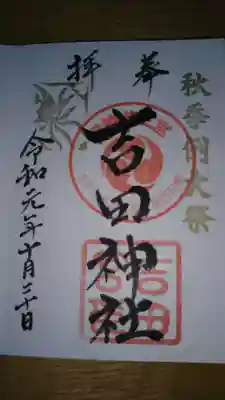 秋季例大祭
奉拝
吉田神社
令和元年十月二十日